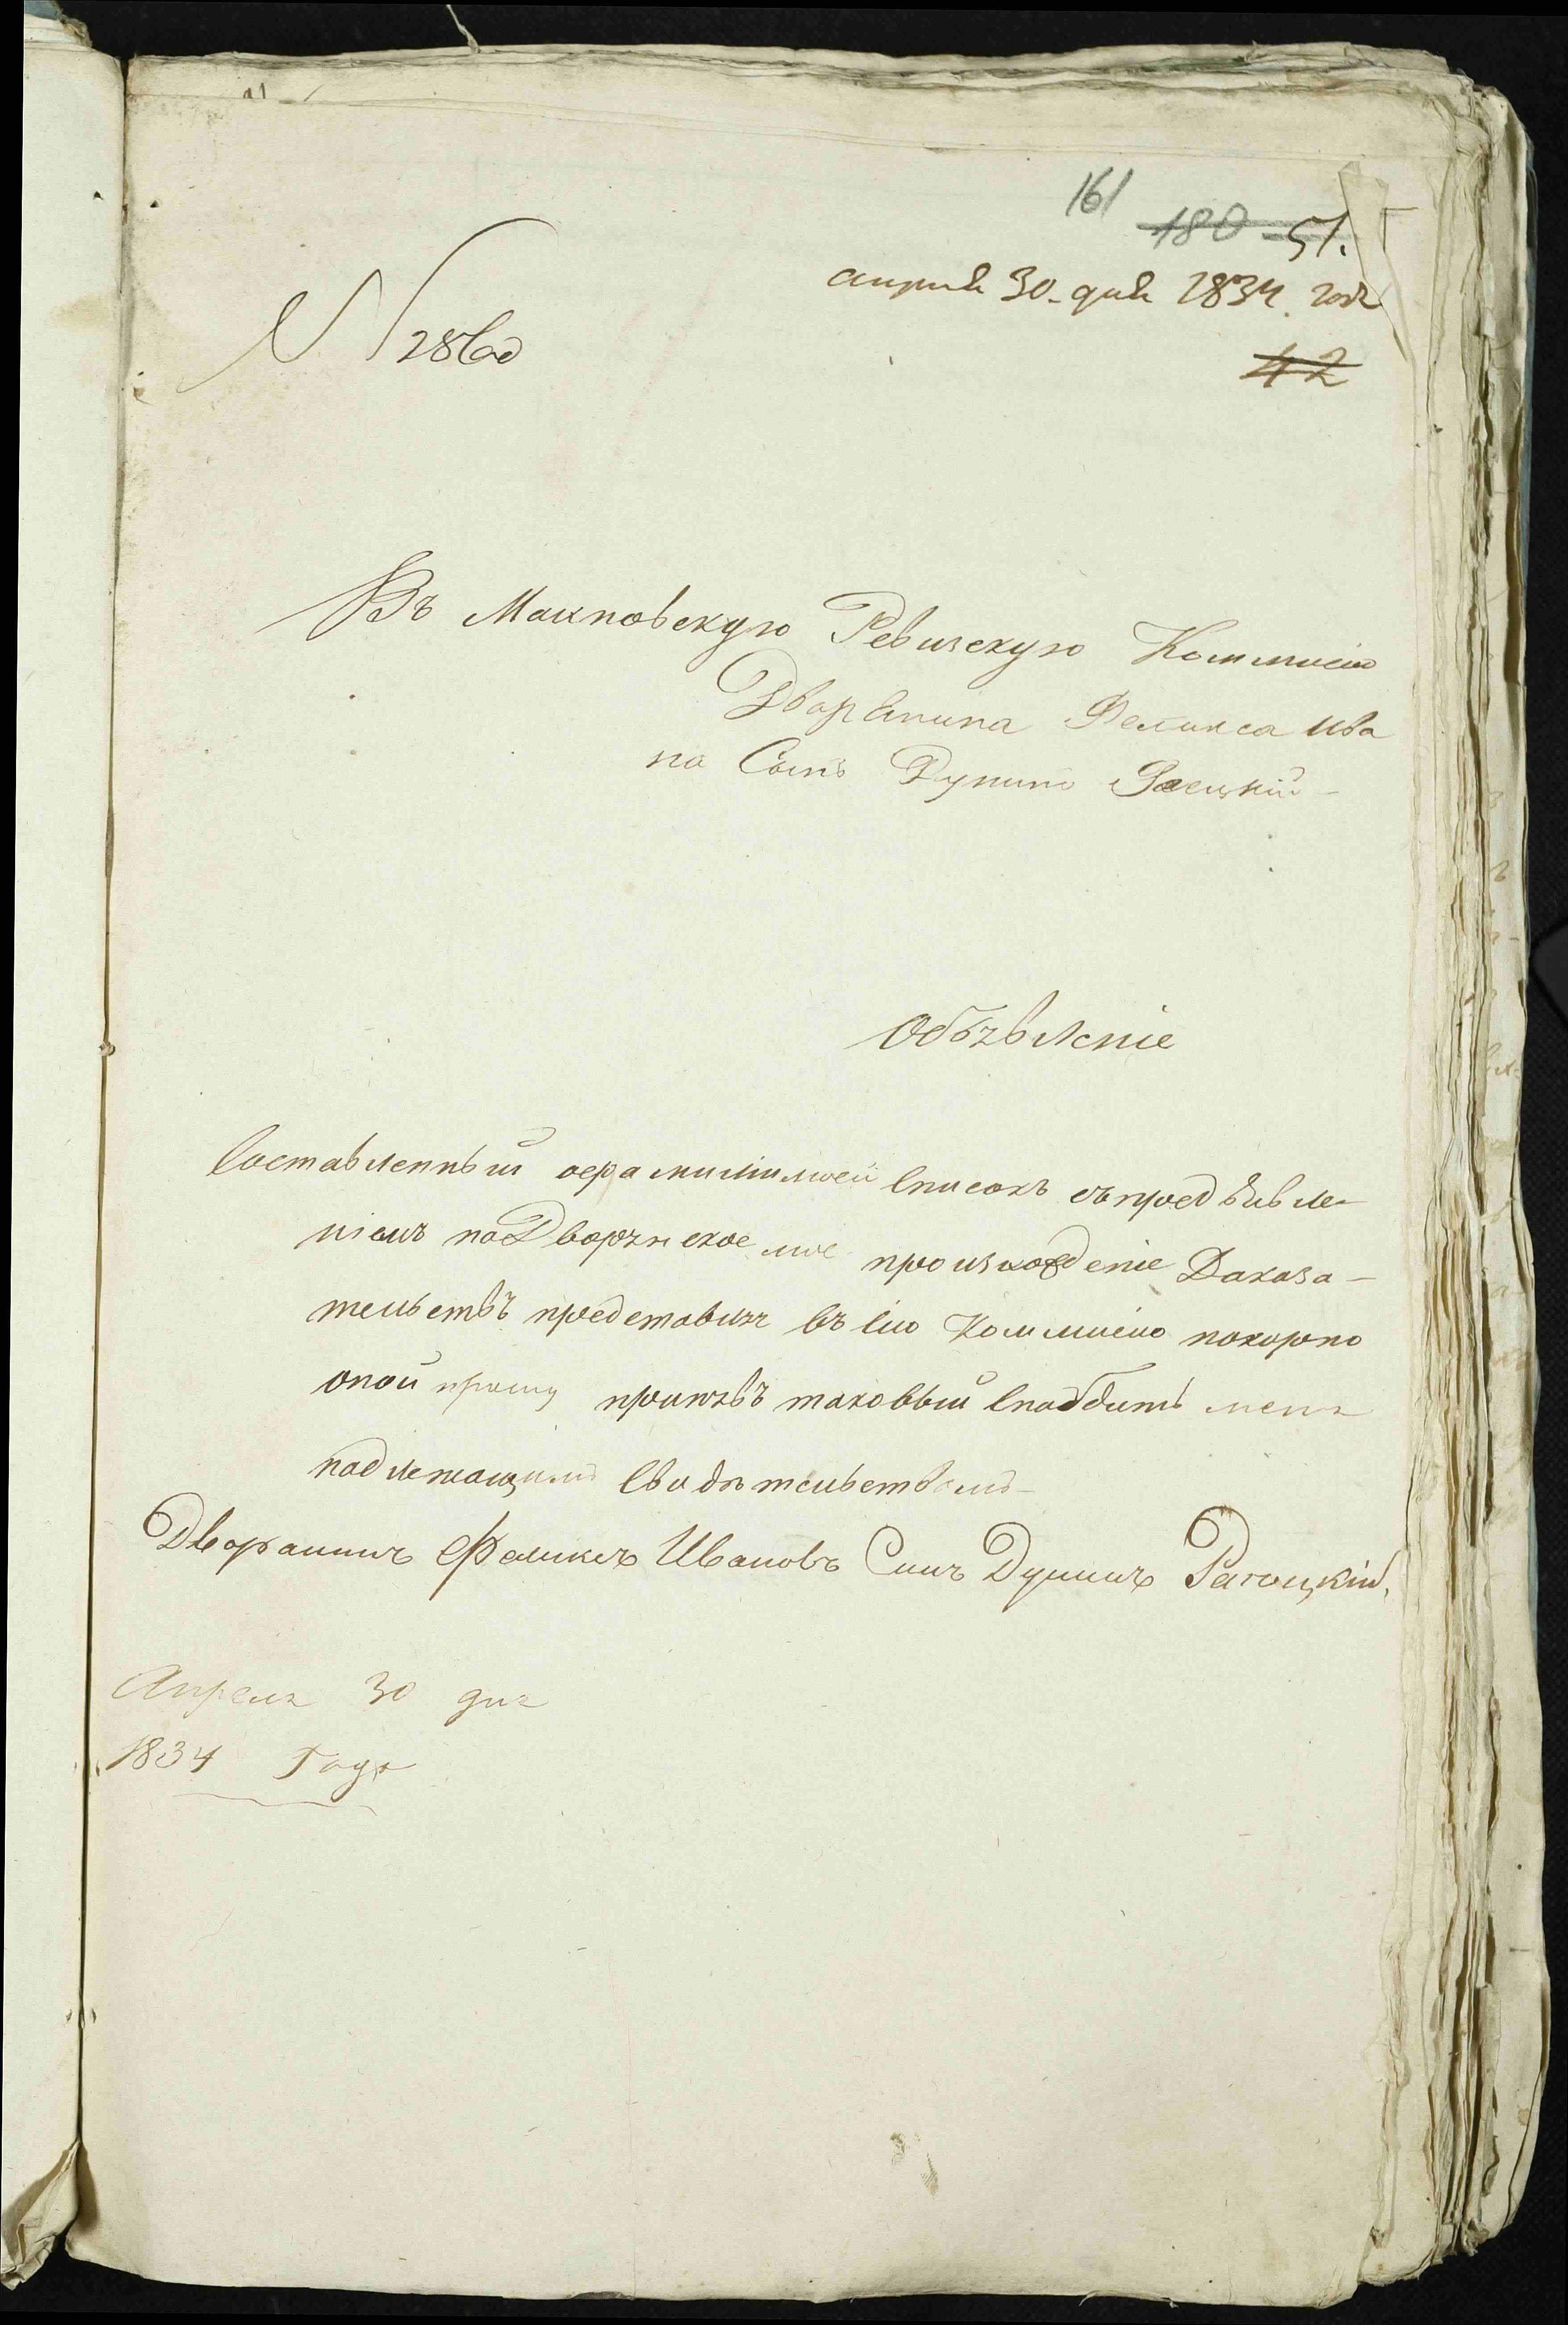 161 180 51.
априля 30. дня 1834. года
N 2860
42
Въ Махновскую Ревизскую Коммисію
Дворянина Феликса Ива
на Сынъ Дунинъ
Объявленіе
Составленный офамиліи моей Списокъ съпредъявле-
ніемъ наДворянское мое произхожденіе Даказа-
тельствъ представляя въ Сію Коммисію покорно
оной прошу принявъ таковый Снабдить меня
надлежащимъ Свидѣтельствомъ
Дворянинъ Феликсъ Ивановъ Синъ Дунинъ Рагоцкій,
Апреля 30 дня
1834 Года